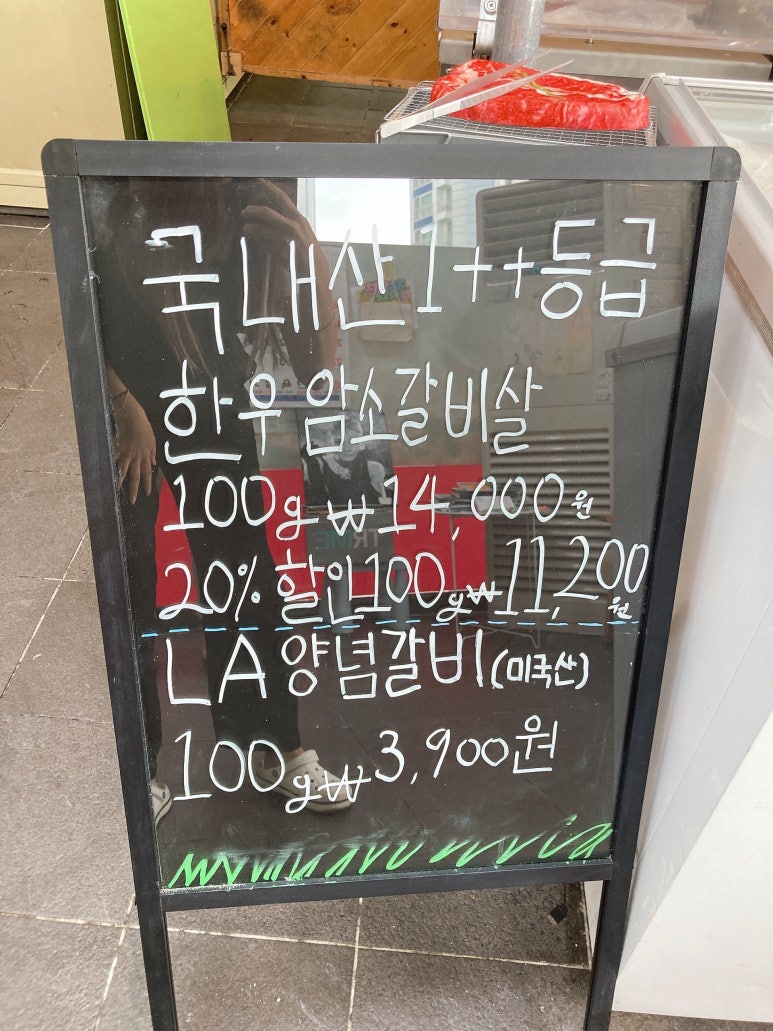 국내산 1++등급
한우 암소갈비살
100g ₩14,000원
20% 할인 100g ₩11,200원
LA 양념갈비 (미국산)
100g ₩3,900원